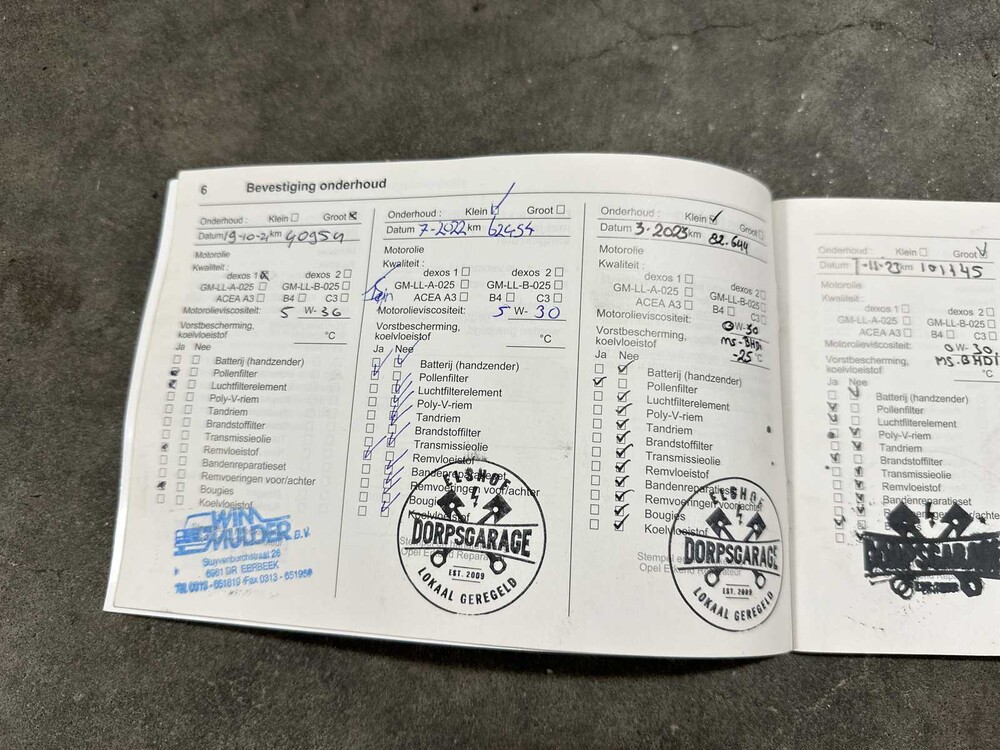 6 Bevestiging onderhoud
Onderhoud : Klein Groot
Datum 19-10-21 km 40954
Motorolie
Kwaliteit :
dexos 1 dexos 2
GM-LL-A-025 GM-LL-B-025
ACEA A3 B4 C3
Motorolieviscositeit: 5 W- 36
Vorstbescherming,
koelvloeistof °C
Ja Nee
Batterij (handzender)
Pollenfilter
Luchtfilterelement
Poly-V-riem
Tandriem
Brandstoffilter
Transmissieolie
Remvloeistof
Bandenreparatieset
Remvoeringen voor/achter
Bougies
Koelvloeistof
WIM
MULDER B.V.
Stuyvenburchstraat 26
6961 DR EERBEEK
Tel. 0313 - 651819 - Fax 0313 - 651959
Onderhoud : Klein Groot
Datum 7-2022 km 62454
Motorolie
Kwaliteit :
dexos 1 dexos 2
GM-LL-A-025 GM-LL-B-025
ACEA A3 B4 C3
Motorolieviscositeit: 5 W- 30
Vorstbescherming,
koelvloeistof °C
Ja Nee
Batterij (handzender)
Pollenfilter
Luchtfilterelement
Poly-V-riem
Tandriem
Brandstoffilter
Transmissieolie
Remvloeistof
Bandenreparatieset
Remvoeringen voor/achter
Bougies
Koelvloeistof
Opel Erkend Reparateur
ELSHOF
DORPSGARAGE
EST. 2009
LOKAAL GEREGELD
Onderhoud : Klein Groot
Datum 3-2023 km 82.644
Motorolie
Kwaliteit :
dexos 1 dexos 2
GM-LL-A-025 GM-LL-B-025
ACEA A3 B4 C3
Motorolieviscositeit: 0 W-30
MS-BHDI
Vorstbescherming,
koelvloeistof -25 °C
Ja Nee
Batterij (handzender)
Pollenfilter
Luchtfilterelement
Poly-V-riem
Tandriem
Brandstoffilter
Transmissieolie
Remvloeistof
Bandenreparatieset
Remvoeringen voor/achter
Bougies
Koelvloeistof
Stempel
Opel Erkend Reparateur
ELSHOF
DORPSGARAGE
EST. 2009
LOKAAL GEREGELD
Onderhoud : Klein Groot
Datum 1-11-23 km 101145
Motorolie
Kwaliteit :
dexos 1 dexos 2
GM-LL-A-025 GM-LL-B-025
ACEA A3 B4 C3
Motorolieviscositeit: 0 W- 30
MS-BHDI
Vorstbescherming,
koelvloeistof °C
Ja Nee
Batterij (handzender)
Pollenfilter
Luchtfilterelement
Poly-V-riem
Tandriem
Brandstoffilter
Transmissieolie
Remvloeistof
Bandenreparatieset
Bougies
DORPSGARAGE